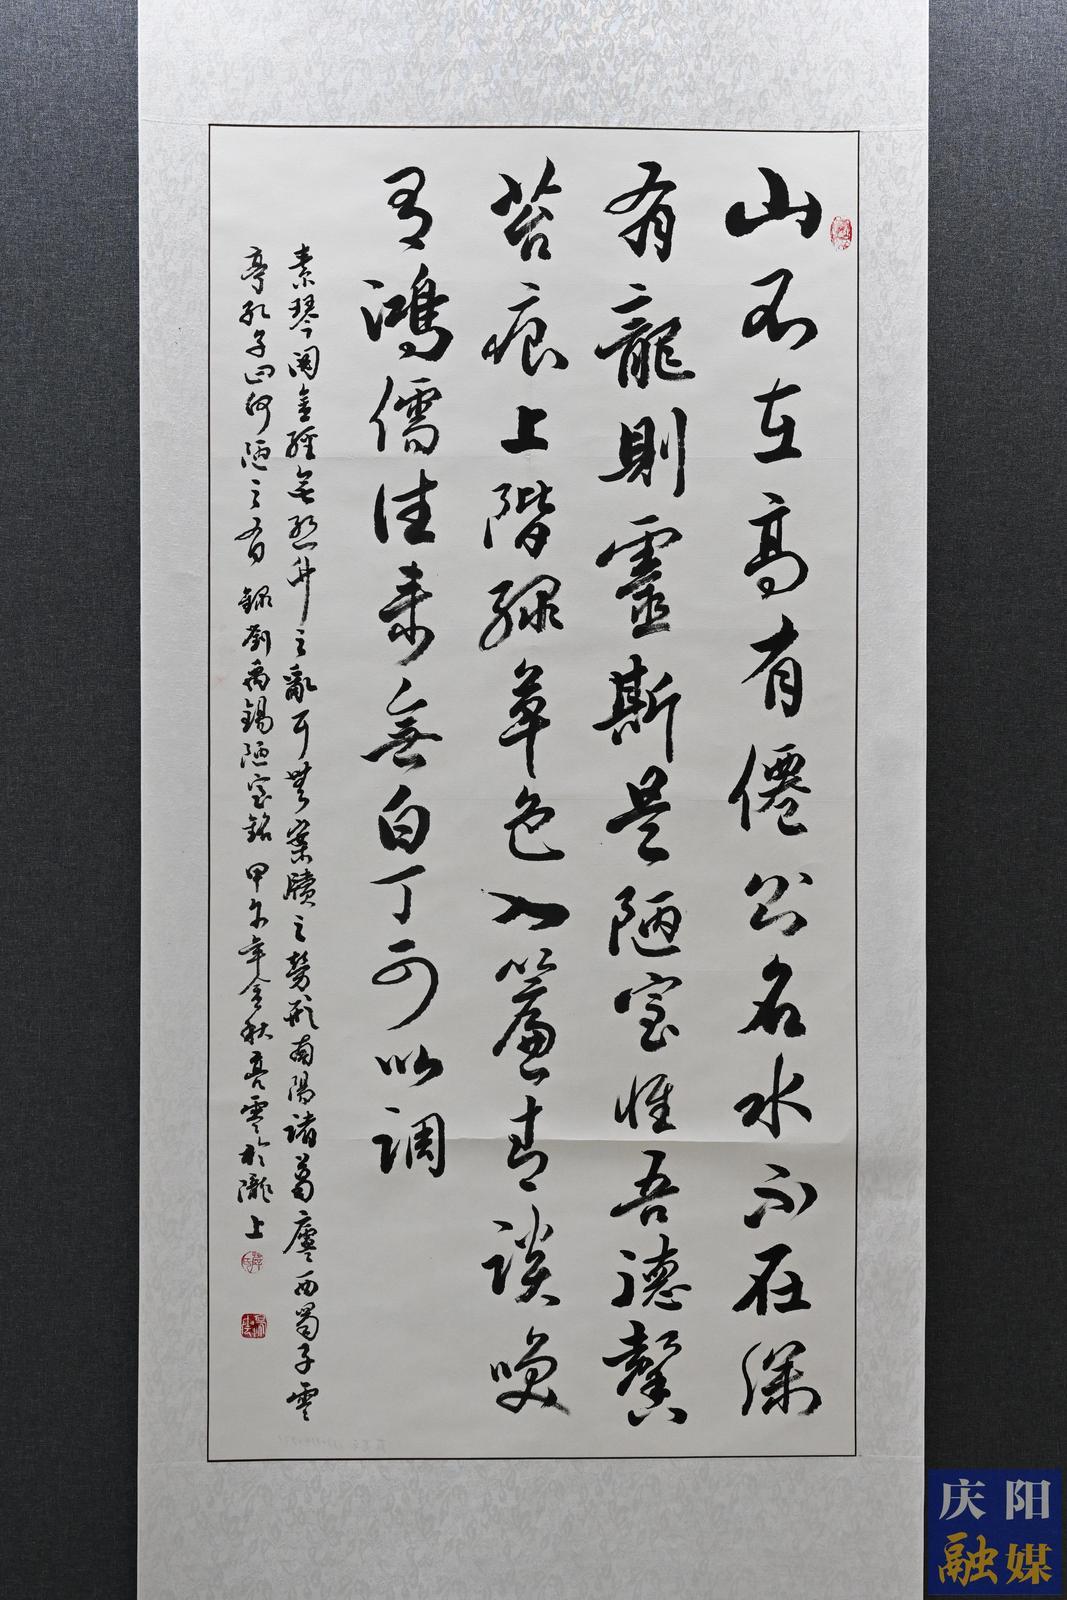 山不在高有僊則名水不在深
有龍則靈斯是陋室惟吾德馨
苔痕上階綠草色入簾青談笑
有鴻儒往來無白丁可以調
素琴閱金經無絲竹之亂耳無案牘之勞形南陽諸葛廬西蜀子雲
亭孔子曰何陋之有 錄劉禹錫陋室銘 甲午年金秋亮雲於隴上
庆阳
融媒